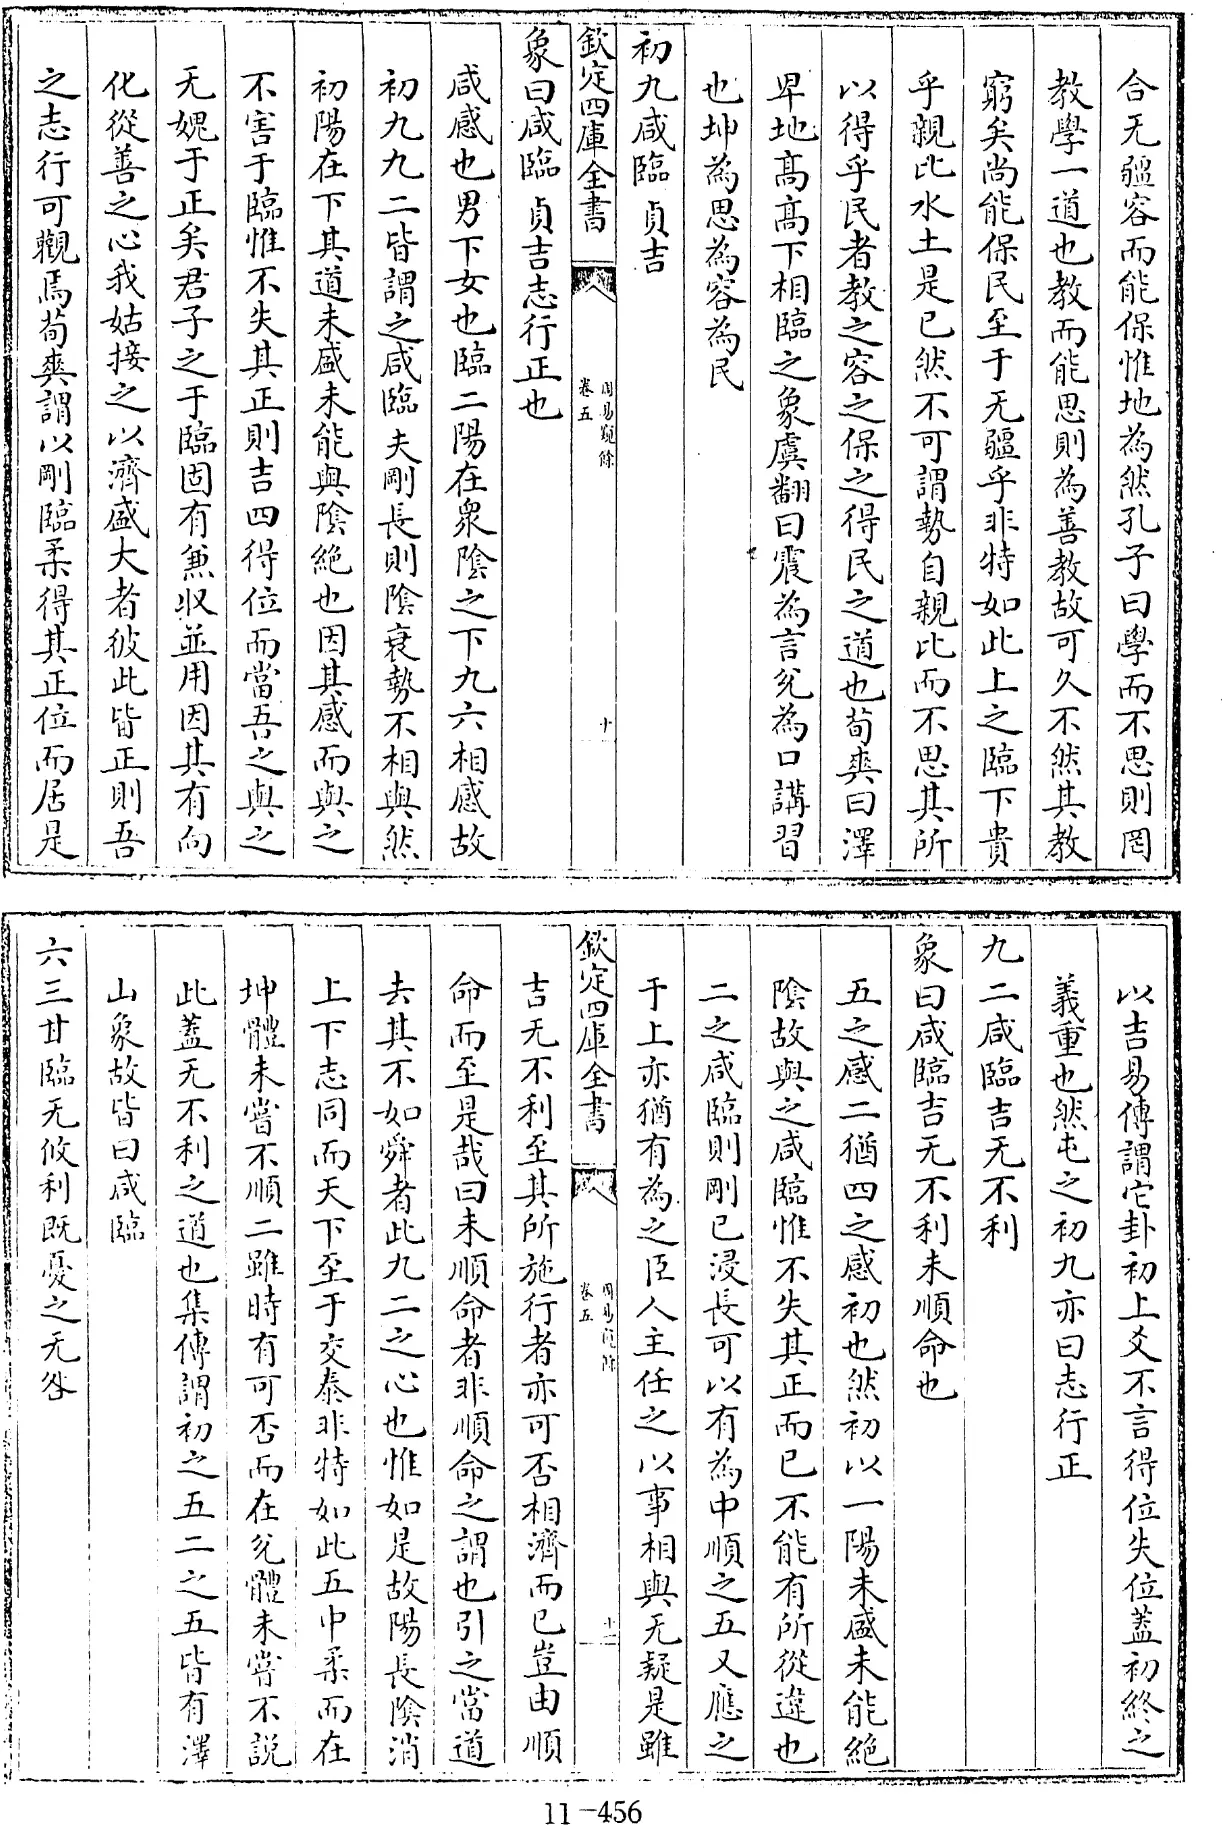 合无疆容而能保惟地為然孔子曰學而不思則罔
教學一道也教而能思則為善教故可久不然其教
窮矣尚能保民至于无疆乎非特如此上之臨下貴
乎親比水土是已然不可謂勢自親比而不思其所
以得乎民者教之容之保之得民之道也荀爽曰澤
卑地髙髙下相臨之象虞翻曰震為言兌為口講習
也坤為思為容為民
初九咸臨貞吉
欽定四庫全書
周易窺餘
卷五
十
象曰咸臨貞吉志行正也
咸感也男下女也臨二陽在衆陰之下九六相感故
初九九二皆謂之咸臨夫剛長則陰衰勢不相與然
初陽在下其道未盛未能與陰絶也因其感而與之
不害于臨惟不失其正則吉四得位而當吾之與之
无媿于正矣君子之于臨固有兼收並用因其有向
化從善之心我姑接之以濟盛大者彼此皆正則吾
之志行可觀焉荀爽謂以剛臨柔得其正位而居是
以吉易傳謂它卦初上爻不言得位失位蓋初終之
義重也然屯之初九亦曰志行正
九二咸臨吉无不利
象曰咸臨吉无不利未順命也
五之感二猶四之感初也然初以一陽未盛未能絶
陰故與之咸臨惟不失其正而已不能有所從違也
二之咸臨則剛已浸長可以有為中順之五又應之
于上亦猶有為之臣人主任之以事相與无疑是雖
欽定四庫全書
周易窺餘
卷五
十一
吉无不利至其所施行者亦可否相濟而已豈由順
命而至是哉曰未順命者非順命之謂也引之當道
去其不如舜者此九二之心也惟如是故陽長陰消
上下志同而天下至于交泰非特如此五中柔而在
坤體未嘗不順二雖時有可否而在兌體未嘗不説
此蓋无不利之道也集傳謂初之五二之五皆有澤
山象故皆曰咸臨
六三甘臨无攸利既憂之无咎
11-456